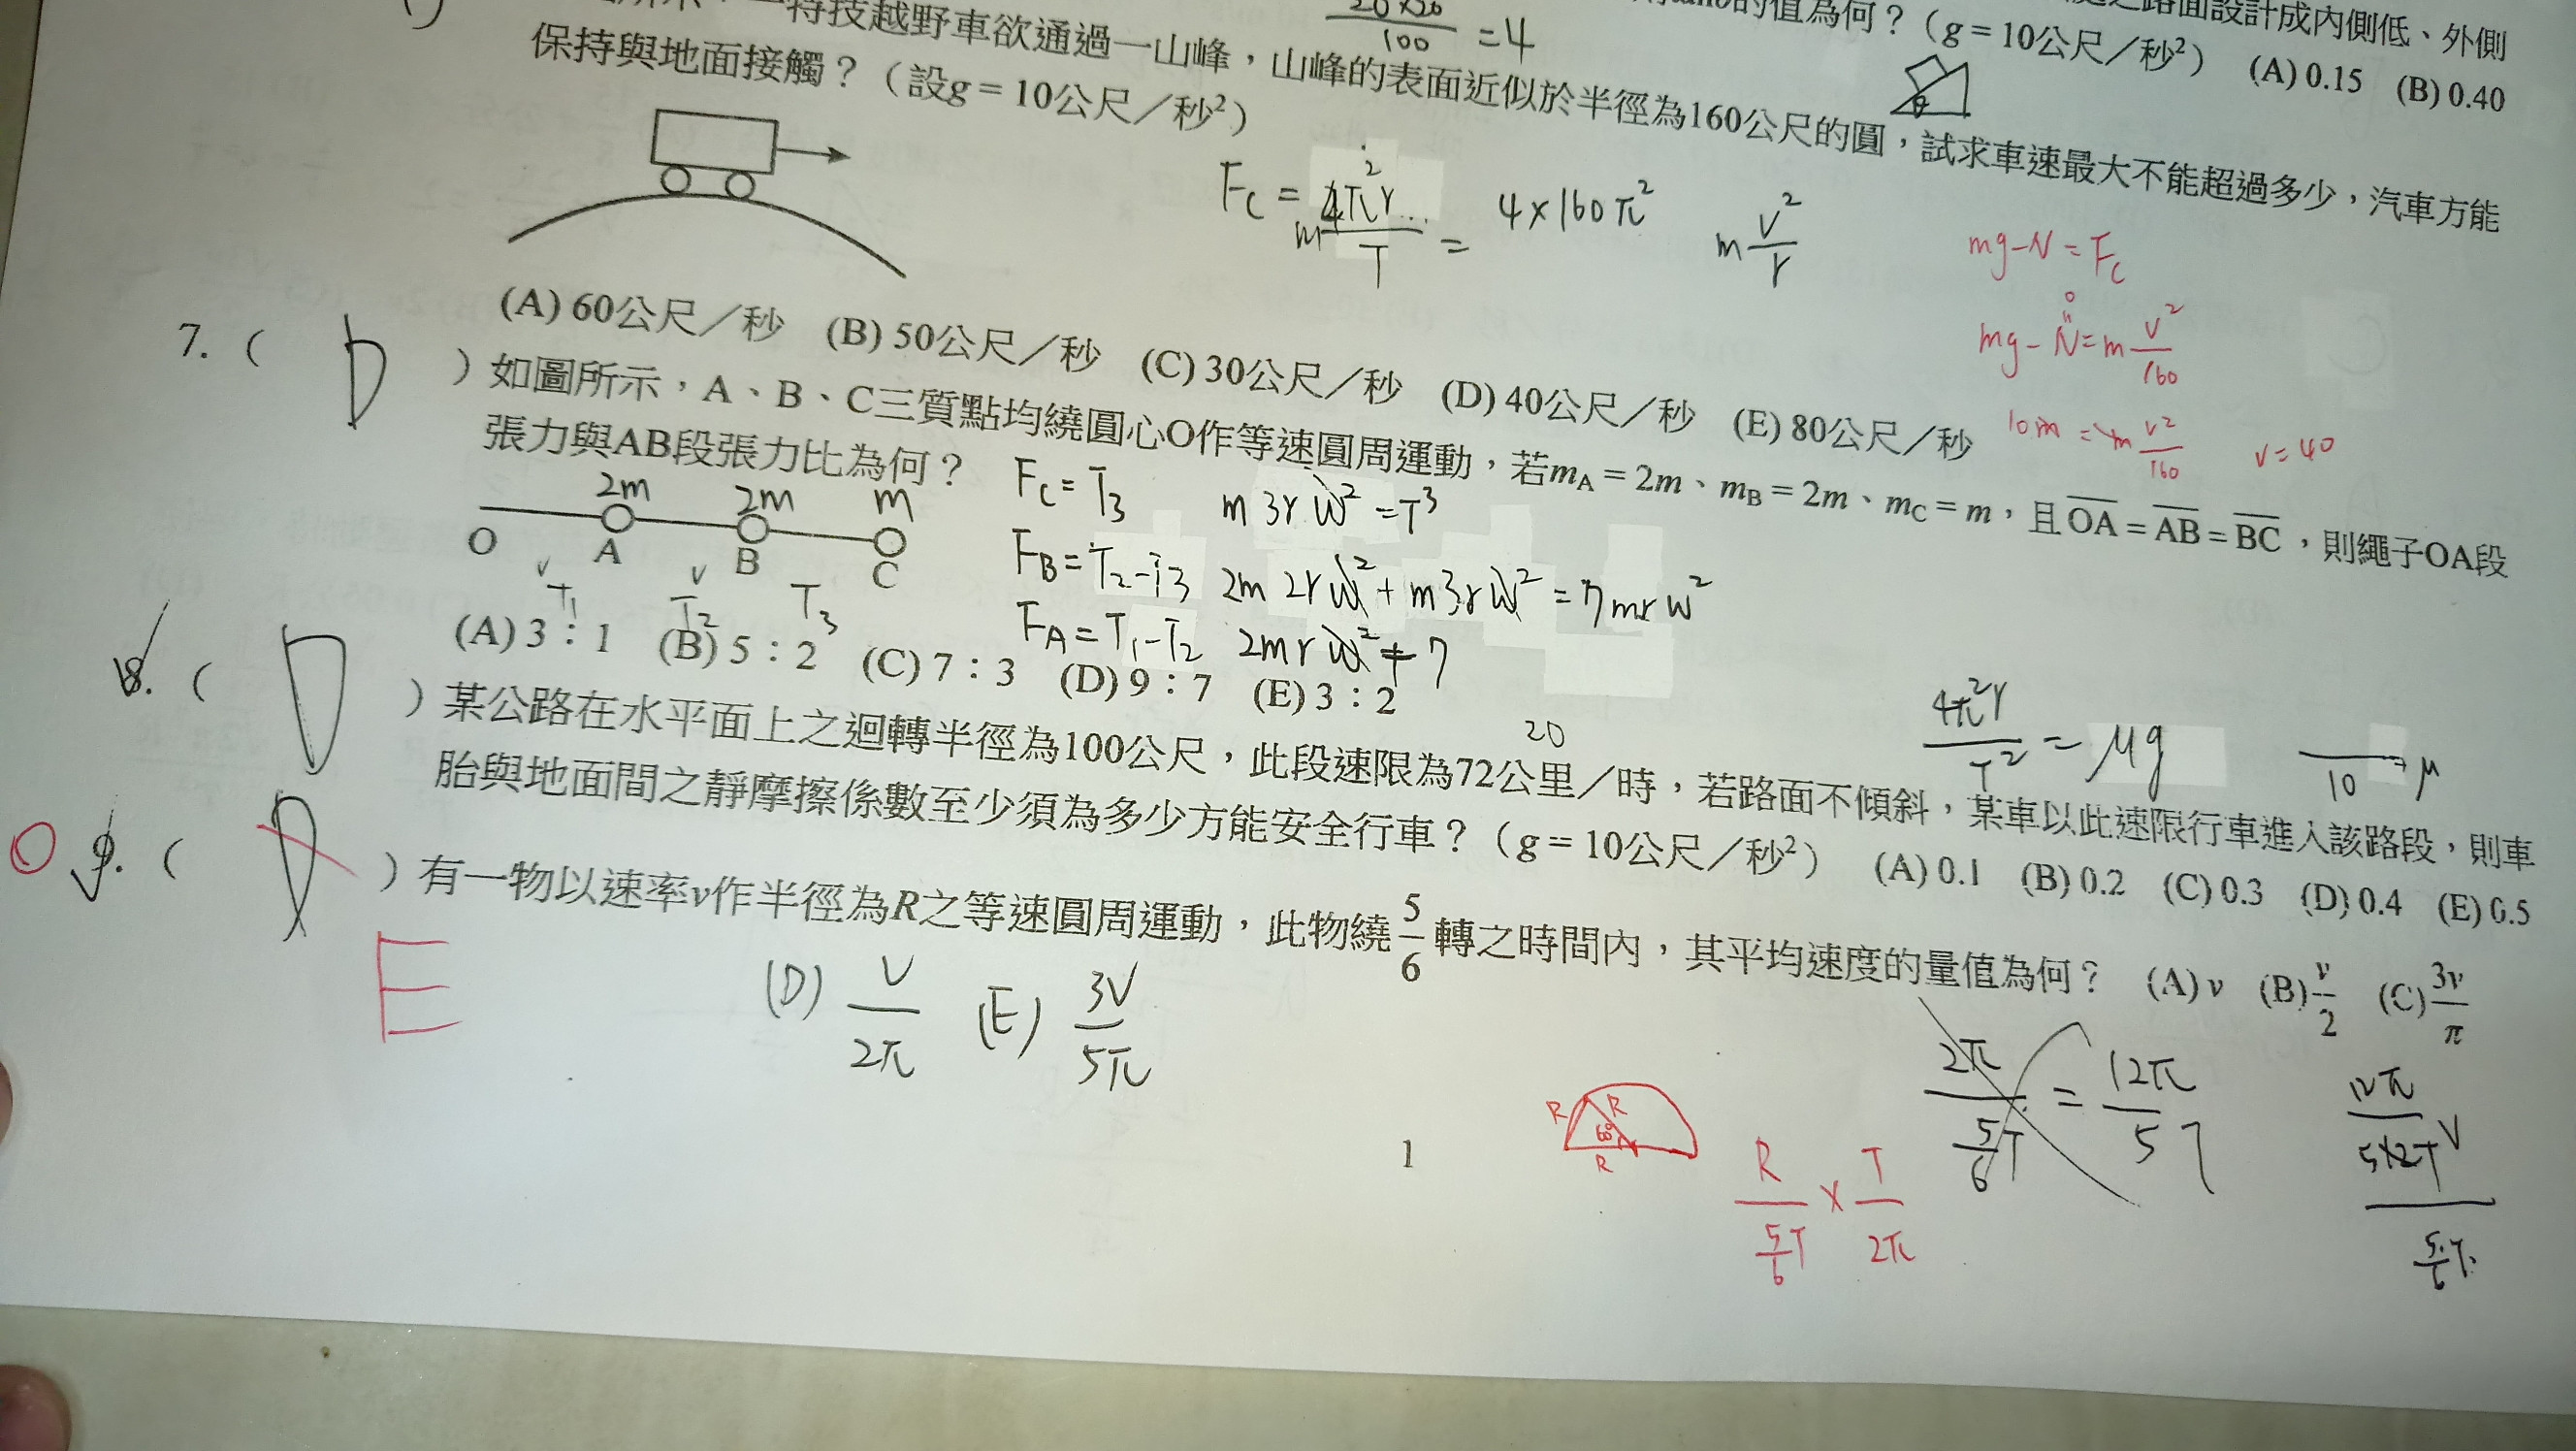 特技越野車欲通過一山峰，山峰的表面近似於半徑為160公尺的圓，試求車速最大不能超過多少，汽車方能
保持與地面接觸？（設g = 10公尺／秒²）
的值為何？（g = 10公尺／秒²） (A) 0.15 (B) 0.40
路面設計成內側低、外側
20×20/100 = 4
θ
Fc = m 4π²r/T = 4×160π² m v²/r
mg-N = Fc
mg-N = m v²/160
0
10m = m v²/160 v=40
(A) 60公尺／秒 (B) 50公尺／秒 (C) 30公尺／秒 (D) 40公尺／秒 (E) 80公尺／秒
7. ( D ) 如圖所示，A、B、C三質點均繞圓心O作等速圓周運動，若mA = 2m、mB = 2m、mC = m，且OA = AB = BC，則繩子OA段
張力與AB段張力比為何？
2m 2m m
O A B C
T1 T2 T3
Fc = T3 m3rw² = T3
FB = T2-T3 2m2rw² + m3rw² = 7mrw²
FA = T1-T2 2mrw² + 7
(A) 3：1 (B) 5：2 (C) 7：3 (D) 9：7 (E) 3：2
8. ( D ) 某公路在水平面上之迴轉半徑為100公尺，此段速限為72公里／時，若路面不傾斜，某車以此速限行車進入該路段，則車
20
胎與地面間之靜摩擦係數至少須為多少方能安全行車？（g = 10公尺／秒²） (A) 0.1 (B) 0.2 (C) 0.3 (D) 0.4 (E) 0.5
4π²r/T² = μg
10 μ
9. ( D ) 有一物以速率v作半徑為R之等速圓周運動，此物繞5/6轉之時間內，其平均速度的量值為何？ (A) v (B) v/2 (C) 3v/π
E
(D) v/2π (E) 3v/5π
R R 60 R
R/(5/6 T) × T/2π
2π/(5/6 T) = 12π/5T
1